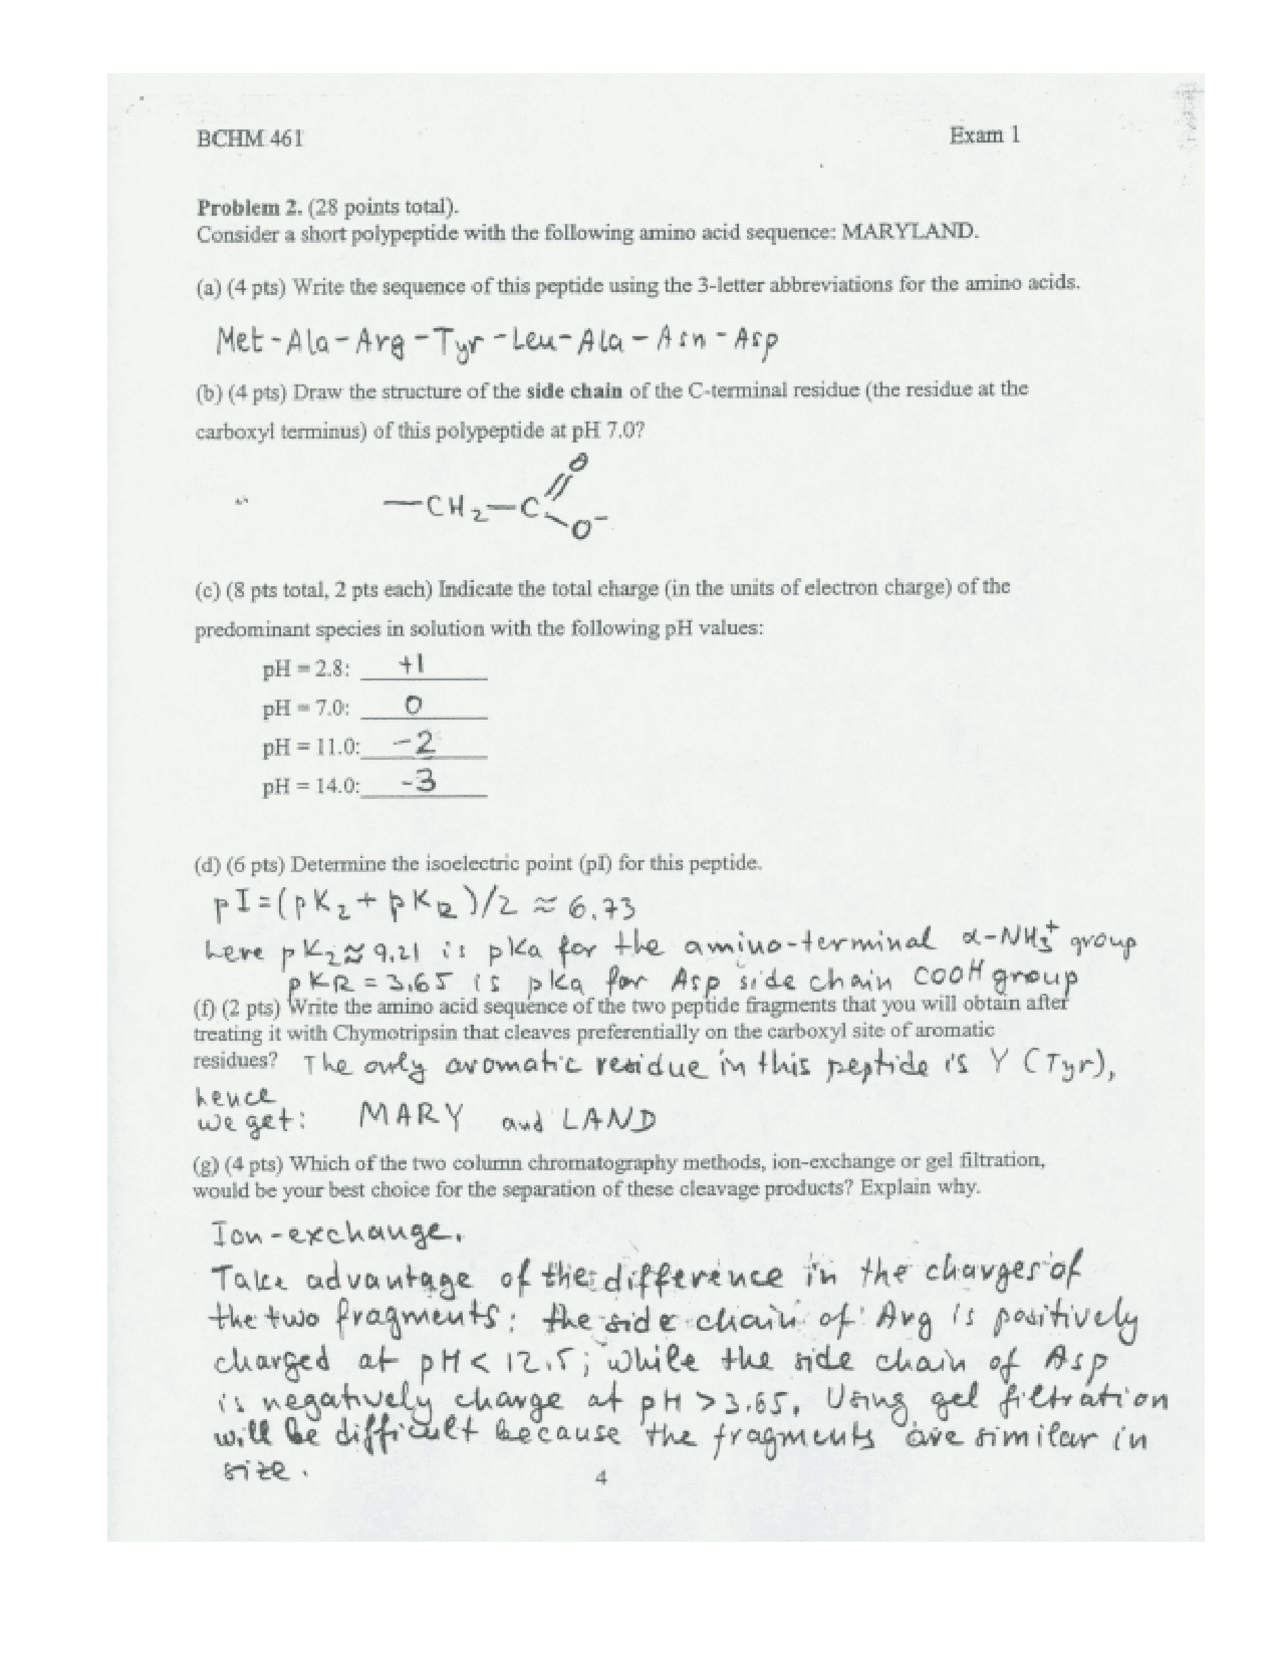 BCHM 461
Exam 1
Problem 2. (28 points total).
Consider a short polypeptide with the following amino acid sequence: MARYLAND.
(a) (4 pts) Write the sequence of this peptide using the 3-letter abbreviations for the amino acids.
Met-Ala-Arg-Tyr-Leu-Ala-Asn-Asp
(b) (4 pts) Draw the structure of the side chain of the C-terminal residue (the residue at the
carboxyl terminus) of this polypeptide at pH 7.0?
O
—CH2—C
O−
(c) (8 pts total, 2 pts each) Indicate the total charge (in the units of electron charge) of the
predominant species in solution with the following pH values:
pH = 2.8: +1
pH = 7.0: 0
pH = 11.0: -2
pH = 14.0: -3
(d) (6 pts) Determine the isoelectric point (pI) for this peptide.
pI=(pK2+pKR)/2 ≈ 6.73
here pK2≈9.21 is pKa for the amino-terminal α-NH3+ group
pKR = 3.65 is pKa for Asp side chain COOH group
(f) (2 pts) Write the amino acid sequence of the two peptide fragments that you will obtain after
treating it with Chymotripsin that cleaves preferentially on the carboxyl site of aromatic
residues? The only aromatic residue in this peptide is Y (Tyr),
hence
we get: MARY and LAND
(g) (4 pts) Which of the two column chromatography methods, ion-exchange or gel filtration,
would be your best choice for the separation of these cleavage products? Explain why.
Ion-exchange.
Take advantage of the difference in the charges of
the two fragments: the side chain of Arg is positively
charged at pH < 12.5; while the side chain of Asp
is negatively charge at pH > 3.65. Using gel filtration
will be difficult because the fragments are similar in
size.
4